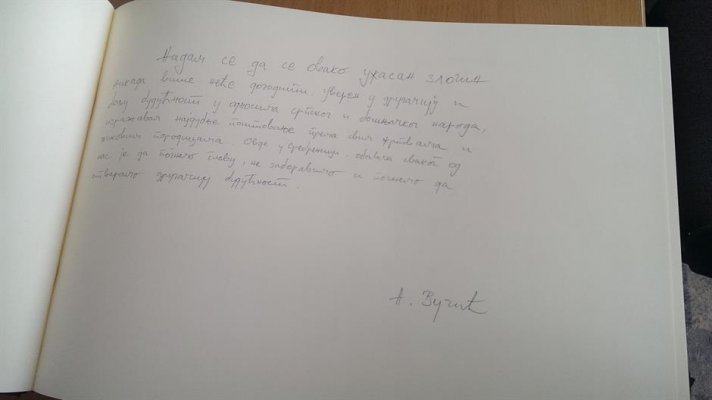 Надам се да се овако ужасан злочин
никада више неће догодити. уверен у другачију и
бољу будућност у односима српског и бошњачког народа,
изражавам најдубље поштовање према свим жртвама и
њиховим породицама. Овде у Сребреници, обавеза сваког од
нас је да погнемо главу, не заборавимо и почнемо да
стварамо другачију будућност.
А. Вучић